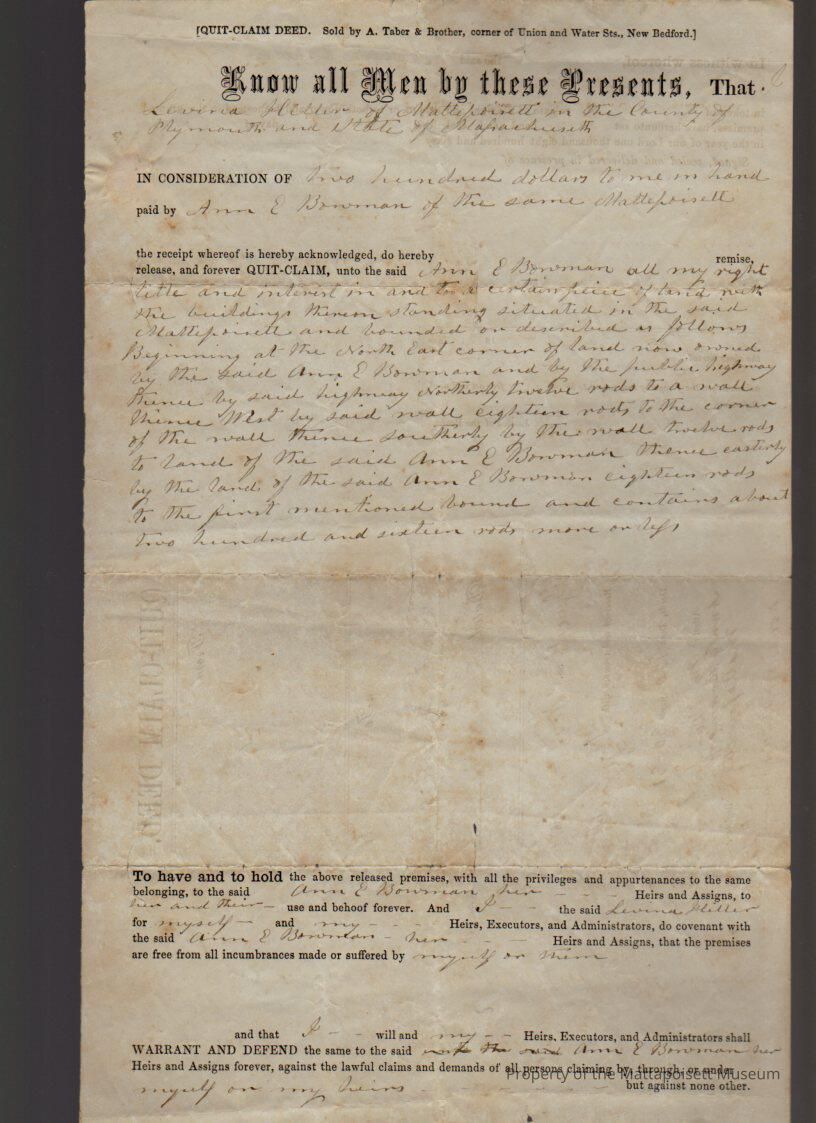 [QUIT-CLAIM DEED. Sold by A. Taber & Brother, corner of Union and Water Sts., New Bedford.]
Know all Men by these Presents, That I
Levina Hiller of Mattepoisett in the County of
Plymouth and State of Massachusetts
IN CONSIDERATION OF two hundred dollars to me in hand
paid by Ann E Bowman of the same Mattepoisett
the receipt whereof is hereby acknowledged, do hereby remise,
release, and forever QUIT-CLAIM, unto the said Ann E Bowman all my right
title and interest in and to a certain piece of land with
the buildings thereon standing situated in the said
Mattepoisett and bounded or described as follows
Beginning at the North East corner of land now owned
by the said Ann E Bowman and by the public highway
thence by said highway Northerly twelve rods to a wall
thence West by said wall eighteen rods to the corner
of the wall thence southerly by the wall twelve rods
to land of the said Ann E Bowman thence easterly
by the land of the said Ann E Bowman eighteen rods
to the first mentioned bound and contains about
two hundred and sixteen rods more or less
To have and to hold the above released premises, with all the privileges and appurtenances to the same
belonging, to the said Ann E Bowman her Heirs and Assigns, to
her and their use and behoof forever. And I the said Levina Hiller
for myself and my Heirs, Executors, and Administrators, do covenant with
the said Ann E Bowman her Heirs and Assigns, that the premises
are free from all incumbrances made or suffered by myself or them
and that I will and my Heirs, Executors, and Administrators shall
WARRANT AND DEFEND the same to the said the said Ann E Bowman her
Heirs and Assigns forever, against the lawful claims and demands of all persons claiming by, through, or under
myself or my heirs but against none other.
Property of the Mattapoisett Museum